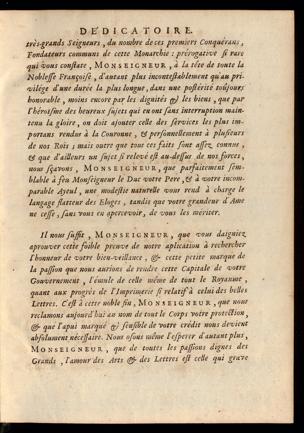 DEDICATOIRE.
très-grands Seigneurs, du nombre de ces premiers Conquérans,
Fondateurs communs de cette Monarchie : prérogative si rare
qui vous constate, MONSEIGNEUR, à la tête de toute la
Noblesse Françoise, d'autant plus incontestablement qu'au pri-
vilége d'une durée la plus longue, dans une postérité toûjours
honorable, moins encore par les dignités & les biens, que par
l'héroïsme des heureux sujets qui en ont sans interruption main-
tenu la gloire, on doit ajoûter celle des services les plus im-
portans rendus à la Couronne, & personnellement à plusieurs
de nos Rois ; mais outre que tous ces faits sont assez connus,
& que d'ailleurs un sujet si relevé est au-dessus de nos forces,
nous sçavons, MONSEIGNEUR, que parfaitement sem-
blable à feu Monseigneur le Duc votre Pere, & à votre incom-
parable Ayeul, une modestie naturelle vous rend à charge le
langage flatteur des Eloges, tandis que votre grandeur d'Ame
ne cesse, sans vous en apercevoir, de vous les mériter.
Il nous suffit, MONSEIGNEUR, que vous daigniez
aprouver cette foible preuve de notre aplication à rechercher
l'honneur de votre bien-veillance, & cette petite marque de
la passion que nous aurions de rendre cette Capitale de votre
Gouvernement, l'émule de celle même de tout le Royaume,
quant aux progrès de l'Imprimerie si relatif à celui des belles
Lettres. C'est à cette noble fin, MONSEIGNEUR, que nous
reclamons aujourd'hui au nom de tout le Corps votre protection,
& que l'apui marqué & sensible de votre crédit nous devient
absolument nécessaire. Nous osons même l'esperer d'autant plus,
MONSEIGNEUR, que de toutes les passions dignes des
Grands, l'amour des Arts & des Lettres est celle qui grave